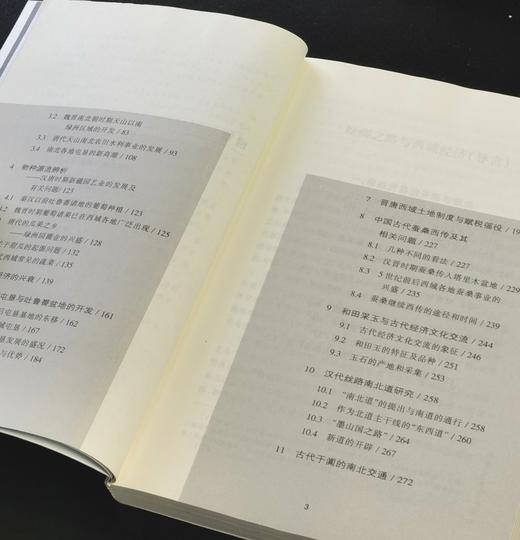 3.2 魏晋南北朝时期天山以南
绿洲区域的开发 / 83
3.3 唐代天山南北农田水利事业的发展 / 93
3.4 南北各地屯垦的新高潮 / 108
4 物种源流辨析
——汉唐时期新疆园艺业的发展及
有关问题 / 123
4.1 秦汉以前吐鲁番诸地的葡萄种植 / 123
4.2 魏晋时期葡萄诸果已在西域各地广泛出现 / 125
唐代的瓜果之乡
——绿洲园圃业的兴盛 / 128
关于甜瓜的起源问题 / 132
代西域常见的蔬菜 / 135
经济的兴衰 / 139
屯垦与吐鲁番盆地的开发 / 161
后屯垦基地的东移 / 162
域屯垦 / 167
发展的盛况 / 172
与优势 / 184
7 晋唐西域土地制度与赋税徭役 / 19
8 中国古代蚕桑西传及其
相关问题 / 227
8.1 几种不同的看法 / 227
8.2 汉晋时期蚕桑传入塔里木盆地 / 229
8.3 5世纪前后西域各地蚕桑事业的
兴盛 / 235
8.4 蚕桑继续西传的途径和时间 / 239
9 和田采玉与古代经济文化交流 / 244
9.1 古代经济文化交流的象征 / 246
9.2 和田玉的特征及品种 / 251
9.3 玉石的产地和采集 / 253
10 汉代丝路南北道研究 / 258
10.1 “南北道”的提出与南道的通行 / 258
10.2 作为北道主干线的“东西道” / 260
10.3 “墨山国之路” / 264
10.4 新道的开辟 / 267
11 古代于阗的南北交通 / 272
3